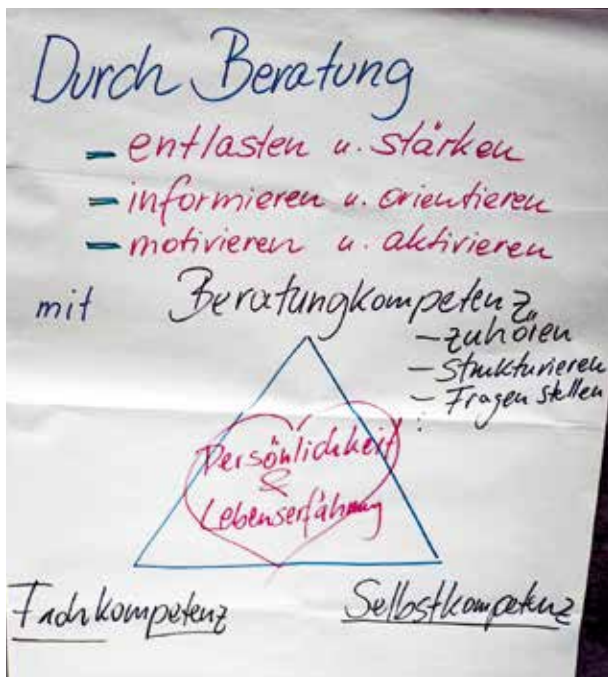 Durch Beratung
– entlasten u. stärken
– informieren u. orientieren
– motivieren u. aktivieren
mit Beratungkompetenz
– zuhören
– Strukturieren
– Fragen stellen
⋮
Persönlichkeit
&
Lebenserfahrung
Fachkompetenz
Selbstkompetenz